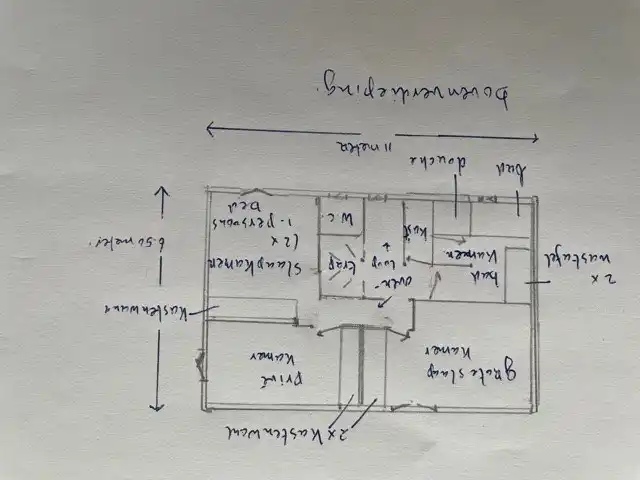 2x Kastenwand
grote slaap
kamer
privé
kamer
2x
wastafel
Kastenwand
bad
kamer
over-
loop
trap
kast
slaapkamer
(2x
1-persoons
bed
W.C.
6.50 meter
bad
douche
11 meter
Bovenverdieping.